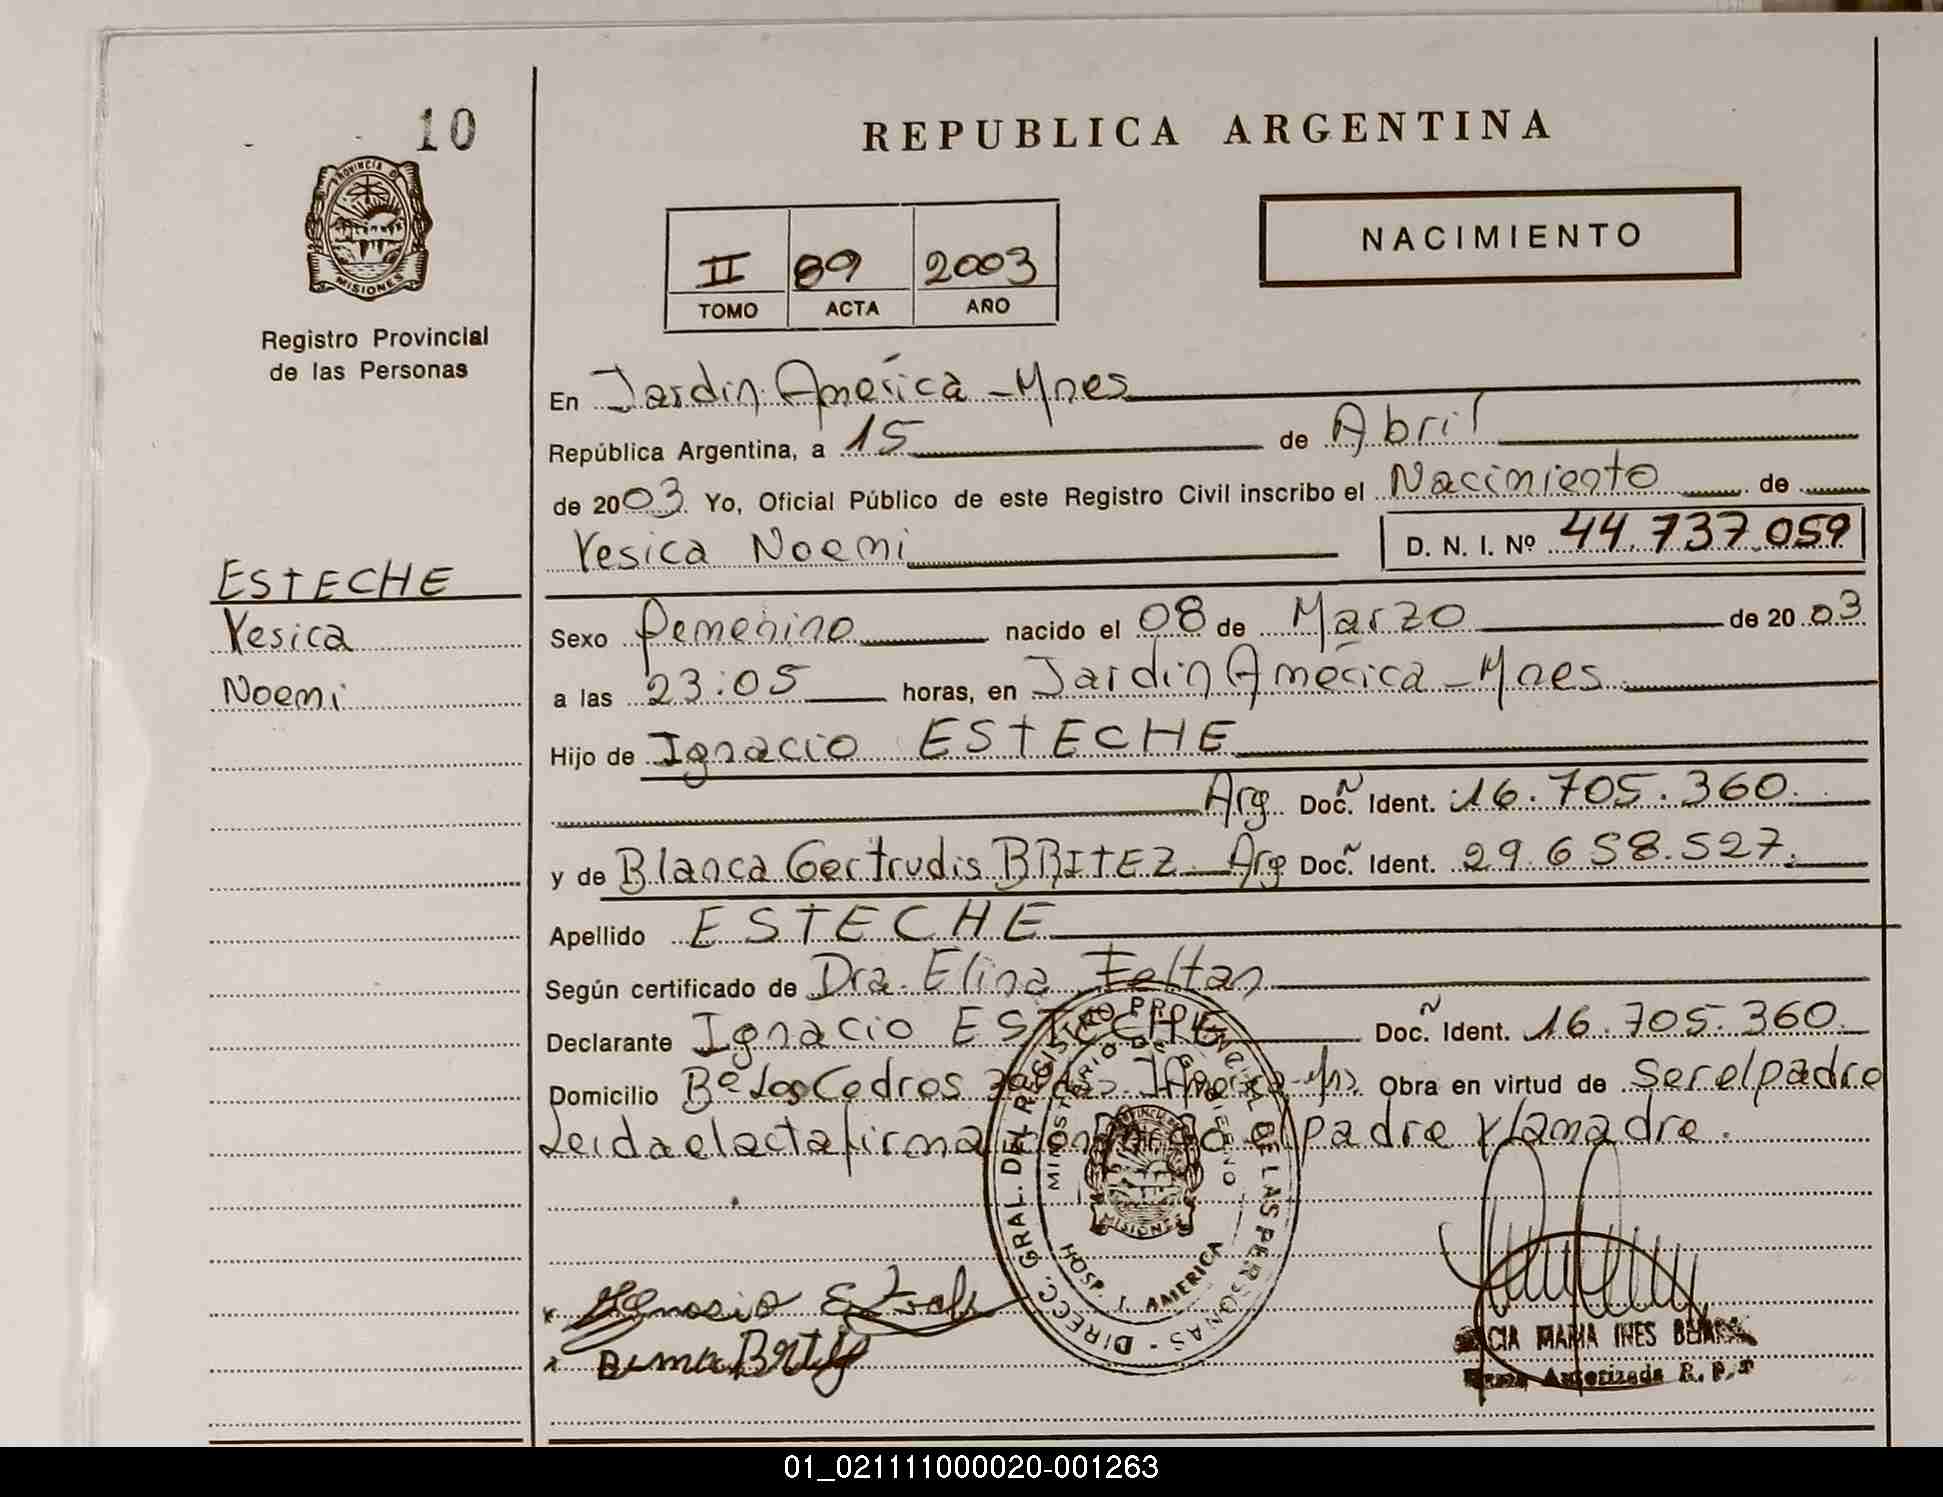 10
PROVINCIA DE
MISIONES
Registro Provincial
de las Personas
ESTECHE
Yesica
Noemi
REPUBLICA ARGENTINA
II 89 2003
TOMO ACTA AÑO
NACIMIENTO
En Jardin América - Mnes
República Argentina, a 15 de Abril
de 2003 Yo, Oficial Público de este Registro Civil inscribo el Nacimiento de
Yesica Noemi D. N. I. Nº 44.737.059
Sexo Femenino nacido el 08 de Marzo de 2003
a las 23:05 horas, en Jardin América - Mnes
Hijo de Ignacio ESTECHE
Arg Doc. Ident. 16.705.360
y de Blanca Gertrudis BRITEZ Arg Doc. Ident. 29.658.527
Apellido ESTECHE
Según certificado de Dra. Elina Feltan
Declarante Ignacio ESTECHE Doc. Ident. 16.705.360
Domicilio Bº Los Cedros Obra en virtud de ser el padre
Leida el acta firma el padre y la madre.
DIRECC. GRAL. DEL REGISTRO PROVINCIAL DE LAS PERSONAS
MINISTERIO DE GOBIERNO
MISIONES
HOSP. J. AMERICA
Ignacio
MARIA INES
Autorizada R. P. P
01_021111000020-001263